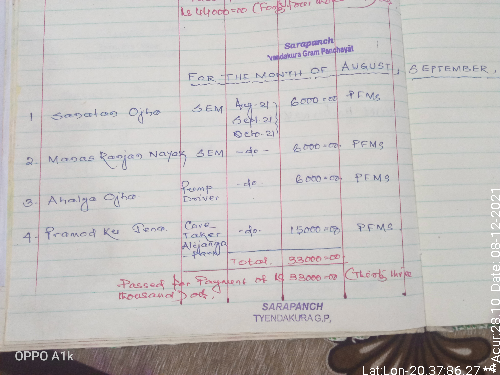 Rs 44000=00 (Forty four
Sarapanch
Yendakura Gram Panchayat
FOR THE MONTH OF AUGUST, SEPTEMBER,
1 Sanatan Ojha SEM Aug-21 6000=00 PFMS
Sept-21
Octo-21
2. Manas Ranjan Nayak SEM -do- 6000=00 PFMS
3. Ahalya Ojha Pump Driver -do- 6000=00 PFMS
4. Pramod Ku Jena Care_ -do- 15000=00 PFMS
Taker
Total 33000=00
Passed for Payment of Rs 33000=00 (Thirty three
thousand) only.
SARAPANCH
TYENDAKURA G.P,
OPPO A1k
Lat:Lon-20.37:86.27**
**Acur:28.10 Date:08-12-2021